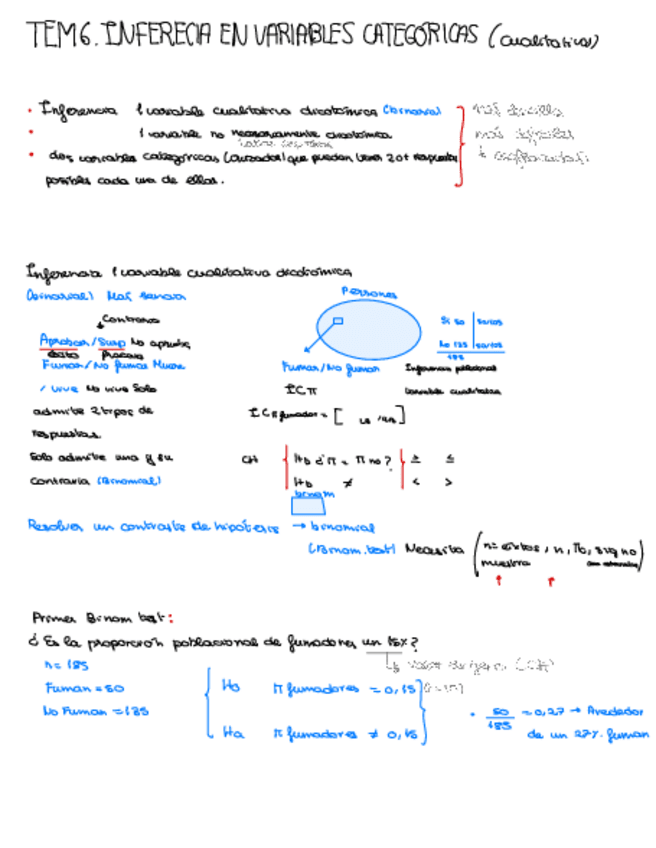 TEM6. INFERECIA EN VARIABLES CATEGÓRICAS (cualitativas)
• Inferencia 1 variable cualitativa dicotómica (binomial)
• 1 variable no necesariamente dicotómica
• dos variables categóricas (cruzadas) que puedan tener 2 o + respuestas
posibles cada una de ellas.
más sencilla
más
+
Inferencia 1 variable cualitativa dicotómica
(binomial) Más sencilla
Contraria
Aprobar/Susp No aprueba
éxito fracaso
Fumar/No fumar Muere
/ vive No vive Solo
admite 2 tipos de
respuestas.
Solo admite una y su
contraria (Binomial)
Personas
Fumar/No fumar
IC π
IC π fumador = [ ]
Si 50
No 135
185
Inferencia poblacional
variable cualitativa
CH
Ho ¿ π = π no? ≥ ≤
≠ < >
binom
Resolver un contraste de hipótesis → binomial
(Binom.test) Necesita (n = éxitos, n, πo, sig no)
muestra
Primer Binom test:
¿ Es la proporción poblacional de fumadores un 15%?
n = 185
Fuman = 50
No Fuman = 135
Ho π fumadores = 0,15
Ha π fumadores ≠ 0,15
• 50/185 = 0,27 → Alrededor
de un 27% fuman